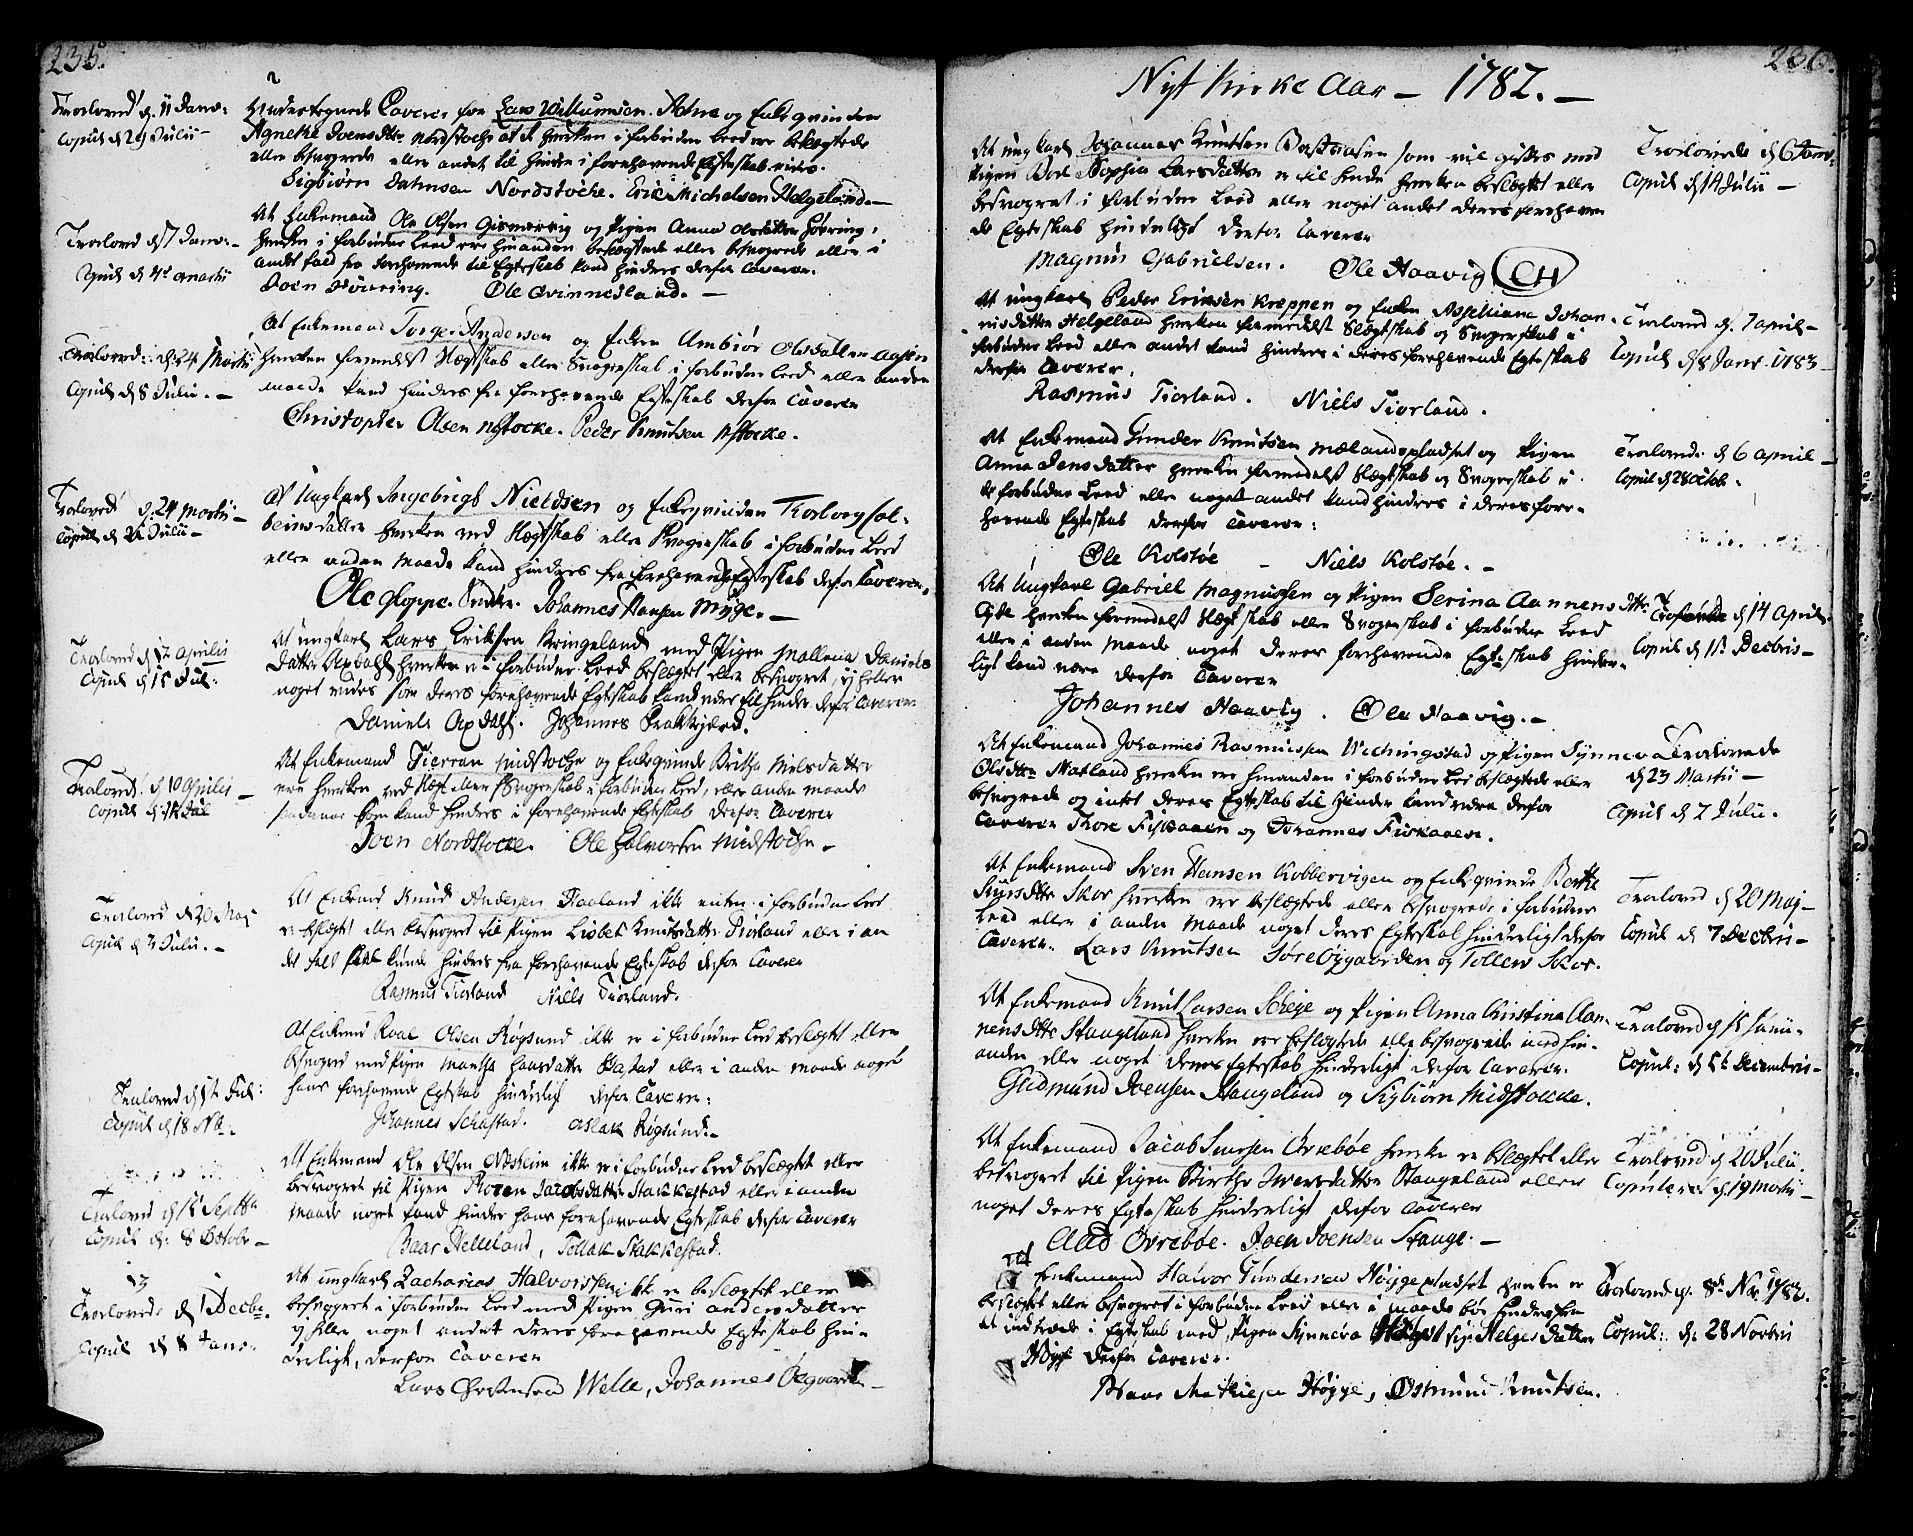 235.
Troloved d. 11 Janv:
Copul d 29 Julii –
Undertegnede Caverer for Lars Villumsen Adne og Enkeqvinden
Agneta Joensdttr Nordstoche at de hverken i forbuden Leed ere beslegtede
eller besvogrede eller andet til hinder i forehavende Egteskab vides.
Sigbiørn Johnsen Nordstoche. Eric Michelsen Helgeland. –
Trolovd d 7 Janv: –
Copul d 4de Martii
At Enkemand Ole Olsen Gismervig og Pigen Anna Olsdatter Høvring,
hverken i forbuden Leed ere hinanden beslegtede eller besvogrede eller i
andet fald fra forehavende til Egteskab kand hindres derfor Caverer.
Joen Høvring. Ole Qvinnesland. –
Trolovd: d: 24 Martii
Copul d 8 Julii. –
At Enkemand Torger Andersen og Enken Umbiør Olsdatter
hverken formedelst Slegtskab eller Svogerskab i forbuden Leed eller anden
maade kand hindres fra forehavende Egteskab derfor Caverer
Christopher Olsen Nstocke. Peder Knutsen Nstocke.
Trolovd d. 24 Martii –
Copul d 21 Julii –
At Ungkarl Ingebrigt Nieldsen og Enkeqvinden Torborg Tol-
beinsdatter hverken ved Slegtskab eller Svogerskab i forbuden Leed
eller anden maade kand hindres fra forehavende Egteskab derfor Caverer.
Ole Gloppe. Johannes Hansen Myge. –
Trolovd d 17 Aprilis
Copul d 15 Jul:
At ungkarl Lars Eriksen Kringeland med Pigen Mallena Daniels
datter Axdahl hverken er i forbuden Leed beslegtet eller besvogret, ej heller
noget vides som deres forehavende Egteskab kand være til hinder derfor Caverer
Daniel Axdahl. Johannes
Trolovd: d. 10 Aprilis –
Copul d. Jul
At Enkemand Tieran Midstoche og Enkeqvinde Britha Nielsdatter
ere hverken ved Slegt eller Svogerskab i forbuden Leed, eller anden maade
som kand hindres i forehavende Egteskab derfor Caverer
Joen Nordstocke. Ole Halvorsen Midstoche –
Trolovd d 20 Maj
Copul d 3 Julii. –
At Enkemd Knud Andersen Haaland ikke enten i forbuden Leed
er beslegtet eller besvogret til Pigen Lisbet Knutsdatter Tiorland eller i an
det fald kunde hindres fra forehavende Egteskab derfor Caverer
Rasmus Tiorland Niels Tiorland.
Trolovd d 1st Jul:
Copul d 18 :
At Enkemd Roal Olsen Røgsund ikke er i forbuden Leed beslegtet eller
besvogred med Pigen Martha Hansdatter eller i anden maade noget
hans forehavende Egteskab hinderligt derfor Caverer:
Johannes Aslak Røgsund. –
Trolovd d 15 Septbr
Copul d: 8 Octobr –
At Enkemand Ole Olsen Næsheim ikke er i forbuden Leed beslegtet eller
besvogret til Pigen Karen Jacobsdatter Stakkestad eller i anden
maade noget kand hinder hans forehavende Egteskab derfor Caverer
Baar Helleland, Tollak Stakkestad.
13
Trolovede d 1 Decbr.
Copul d 8 Janv:
At ungkarl Zacharias Halvorssen ikke er beslegtet eller
besvogret i forbuden Leed med Pigen Guri Andersdatter
ej heller noget andet deres forehavende Egteskab hin-
derligt, derfor Caverer
Lars Christensen Welle, Johannes Øegaarden –
236.
Nyt Kirke Aar – 1782. –
At ungkarl Johannes Knutsen som vil giftes med
Pigen Boel Sophia Larsdatter er til hende hverken beslegtet eller
besvogret i forbuden Leed eller noget andet deres forehaven
de Egteskab hinderligt derfor Caverer
Magnus Gabrielsen. Ole Haavig (OH)
Trolovede d 6 Janv.
Copul d 14 Julii –
At ungkarl Peder Eriksen Kreppen og Enken Asseliana Johan-
nisdatter Helgeland hverken formedelst Slegtskab og Svogerskab i
forbuden Leed eller andet kand hindres i deres forehavende Egteskab
derfor Caverer.
Rasmus Tiorland. Niels Tiorland.
Trolovd d. 7 April –
Copul d 8 Janv. 1783 –
At Enkemand Gunder Knutsen Mælandspladset og Pigen
Anna Jensdatter hverken formedelst Slegtskab og Svogerskab i
de forbuden Leed eller noget andet kand hindres i deres fore-
havende Egteskab derfor Caverer:
Ole Kolstøe – Niels Kolstøe. –
Trolovd: d 6 April –
Copul d 28 Octob.
At Ungkarl Gabriel Magnussen og Pigen Serina Aannensdttr
hverken formedelst Slegtskab eller Svogerskab i forbuden Leed
eller i anden maade noget deres forehavende Egteskab hinder-
ligt kand være derfor Caverer
Johannes Haavig. Ole Haavig. –
Trolovede d 14 April.
Copul d 11 Decbris –
At Enkemand Johannes Rasmussen Wichingstad og Pigen Synneva
Olsdttr Matland hverken ere hinanden i forbuden Leed beslegtede eller
besvogrede og intet deres Egteskab til hinder kand være derfor
Caverer Thore Fiskaaen og Johannes Fiskaaen.
Trolovede
d 23 Martii –
Copul d 2 Julii.
At Enkemand Sven Hansen Kobbervigen og Enkeqvinde Berthe
Siursdttr Skor hverken ere beslegtede eller besvogrede i forbuden
Leed eller i anden maade noget deres Egteskab hinderligt derfor
Caverer. Lars Knutsen Søre Øygaarden og Tollew Skor.
Trolovd d 20 Maj –
Copul d 7 Decbris –
At Enkemand Knut Larsen Scheje og Pigen Anna Christina Aan-
nensdttr Stangeland hverken ere beslegtede eller besvogrede med hin-
anden eller noget deres Egteskab hinderligt derfor Caverer.
Gudmund Joensen Haugeland og Sigbiørn Midstocke.
Trolovd d 15 Junii –
Copul: d 5t Decembris –
At Enkemand Jacob Swersen Øvrebøe hverken er beslegtet eller
besvogret til Pigen Birthe Iwersdatter Stangeland eller
noget deres Egteskab hinderligt derfor Caverer
Aad Øvrebøe. Joen Joensen Stange. –
Trolovd d 20 Julii.
Copuleret d. 19 Martii –
At Enkemand Halvor Gundersen Høyge pladset hverken er
beslegtet eller besvogret i forbuden Leed eller i maade bør hindres fra
at indtræde i Egteskab med Pigen Synneva Helgesdatter
Høyge derfor Caverer.
Baar Mathiesen Høyge, Østmund Knutsen.
Trolovd d. 8de Nov. 1782.
Copul: d. 28 Novbris